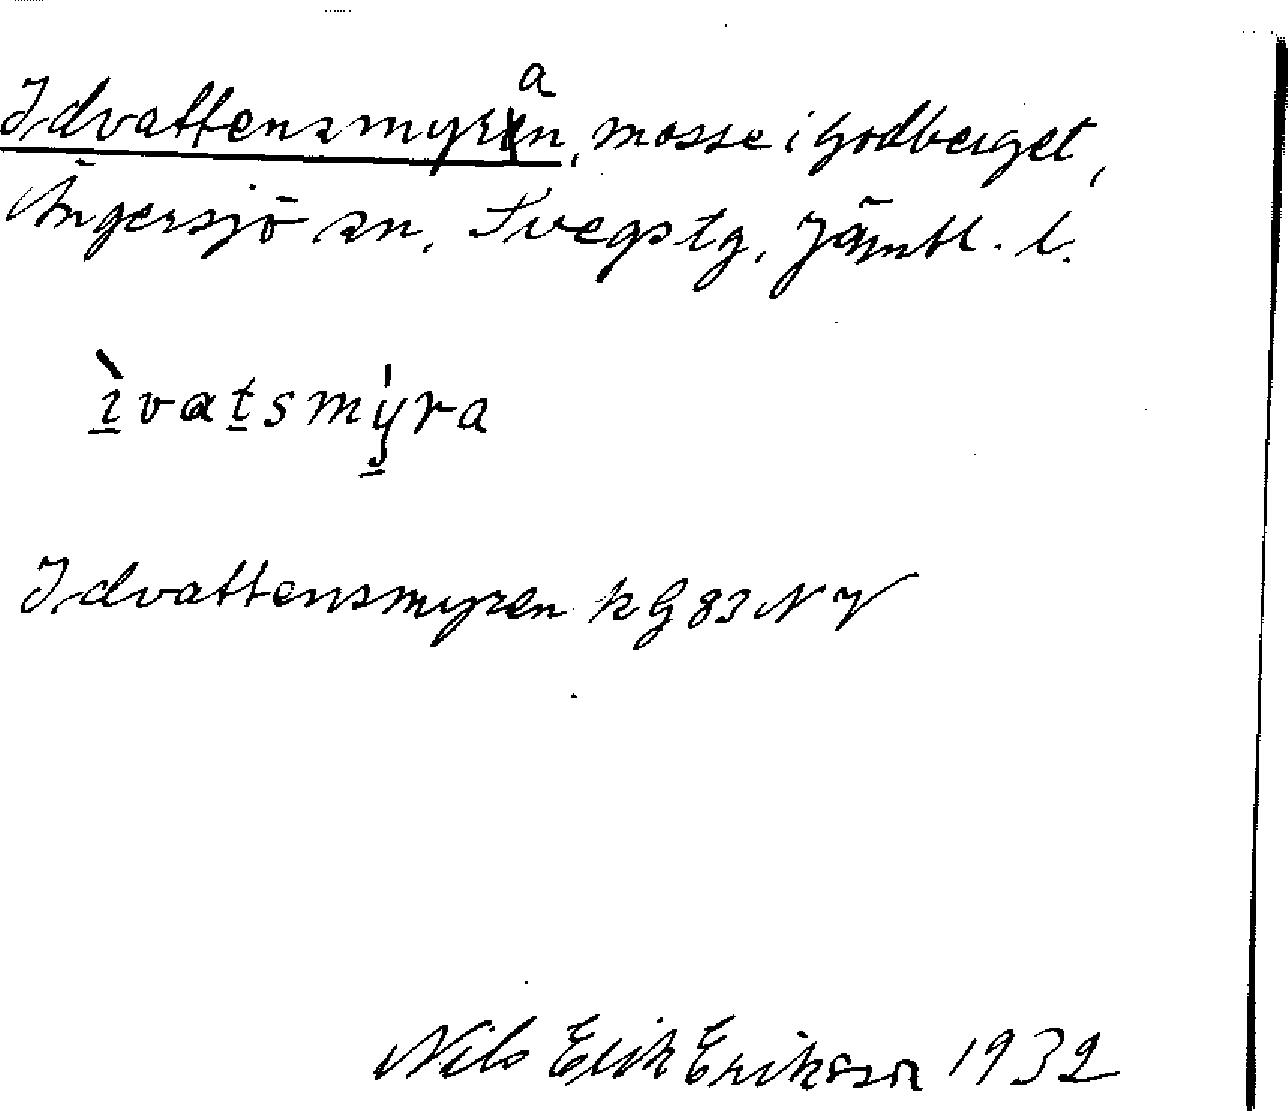 Idvattensmyran, mosse i Godberget,
Ängersjö sn, Svegs tg, Jämtl. l.
ìvatsmýra
Idvattensmyren kG 83 NV
Nils Erik Erikson 1932